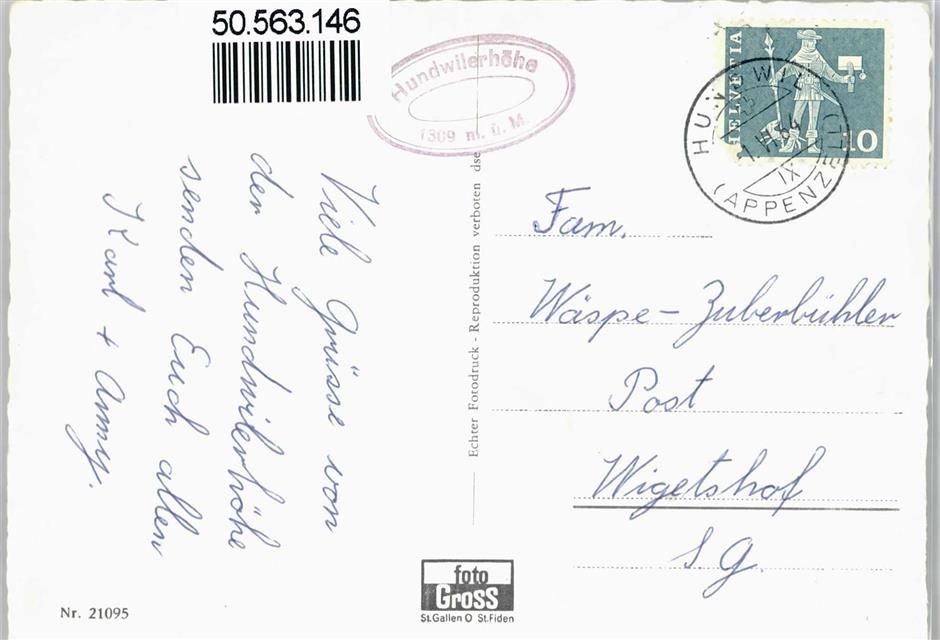 50.563.146
Hundwilerhöhe
1309 m. ü. M.
HELVETIA
10
HUNDWIL
IX
(APPENZELL
Viele Grüsse von
der Hundwilerhöhe
senden Euch allen
Karl + Anny.
Echter Fotodruck - Reproduktion verboten
Fam.
Wäspe-Zuberbühler
Post
Wigetshof
S.G.
foto
GROSS
St.Gallen O St.Fiden
Nr. 21095